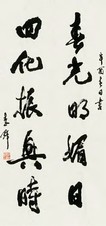 春光明媚日
四化振兴時
辛酉春日書